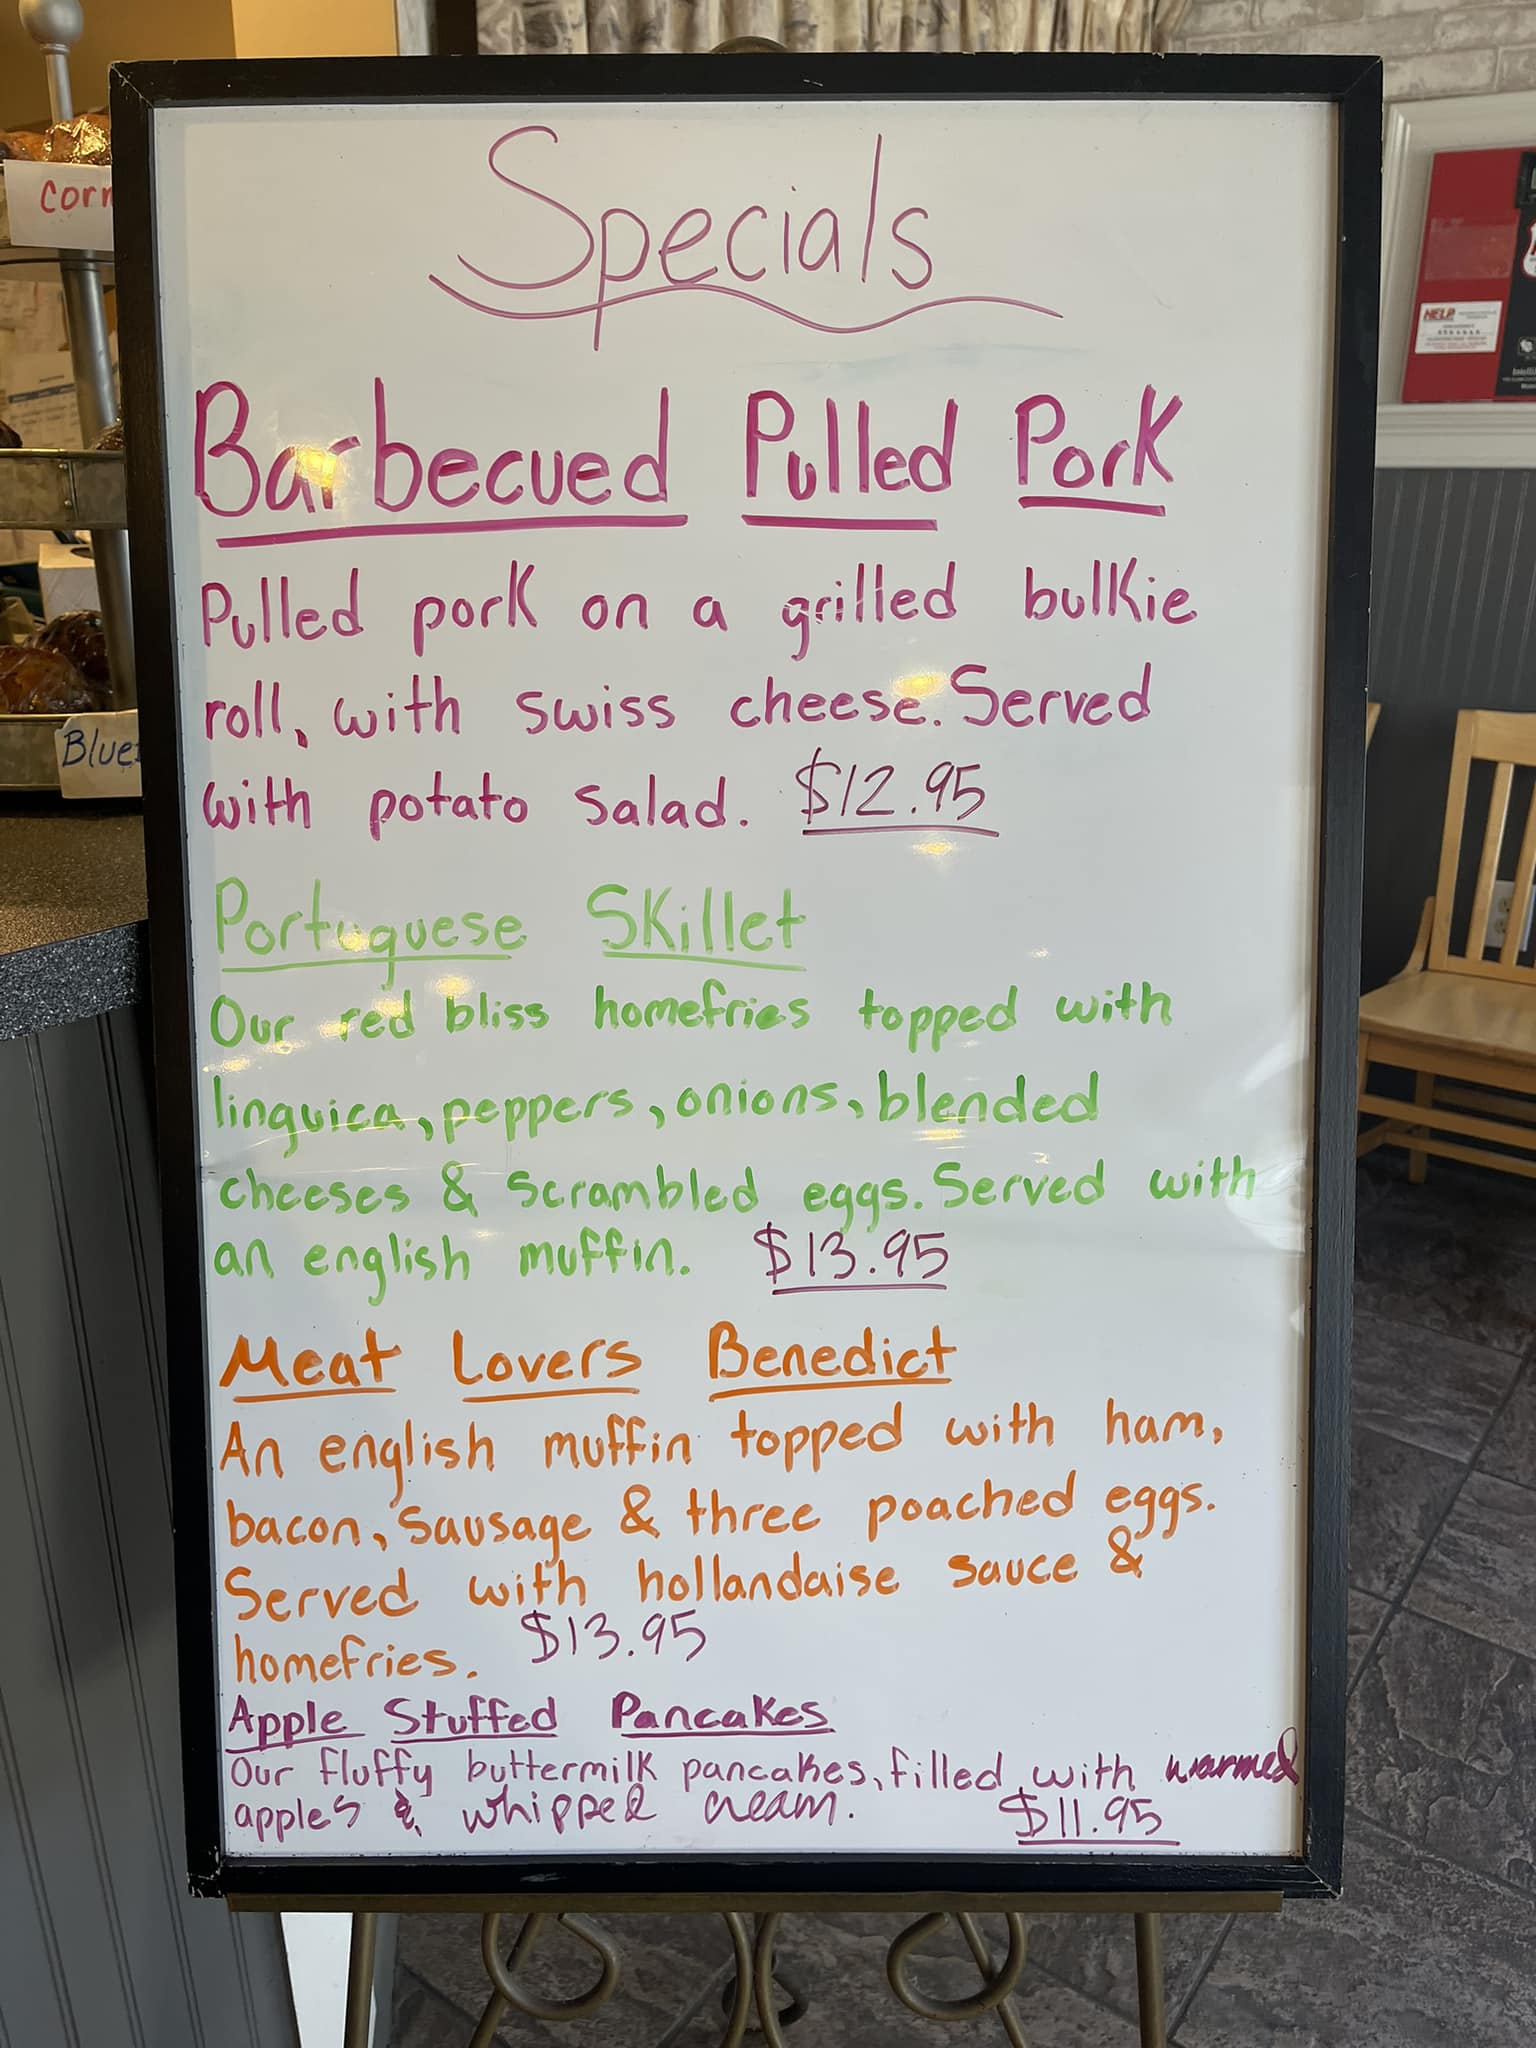 Specials
Barbecued Pulled Pork
Pulled pork on a grilled bulkie
roll, with swiss cheese. Served
with potato salad. $12.95
Portuguese Skillet
Our red bliss homefries topped with
linguica, peppers, onions, blended
cheeses & scrambled eggs. Served with
an english muffin. $13.95
Meat Lovers Benedict
An english muffin topped with ham,
bacon, sausage & three poached eggs.
Served with hollandaise sauce &
homefries. $13.95
Apple Stuffed Pancakes
Our fluffy buttermilk pancakes, filled with warmed
apples & whipped cream. $11.95
Corn
Blue
HELP